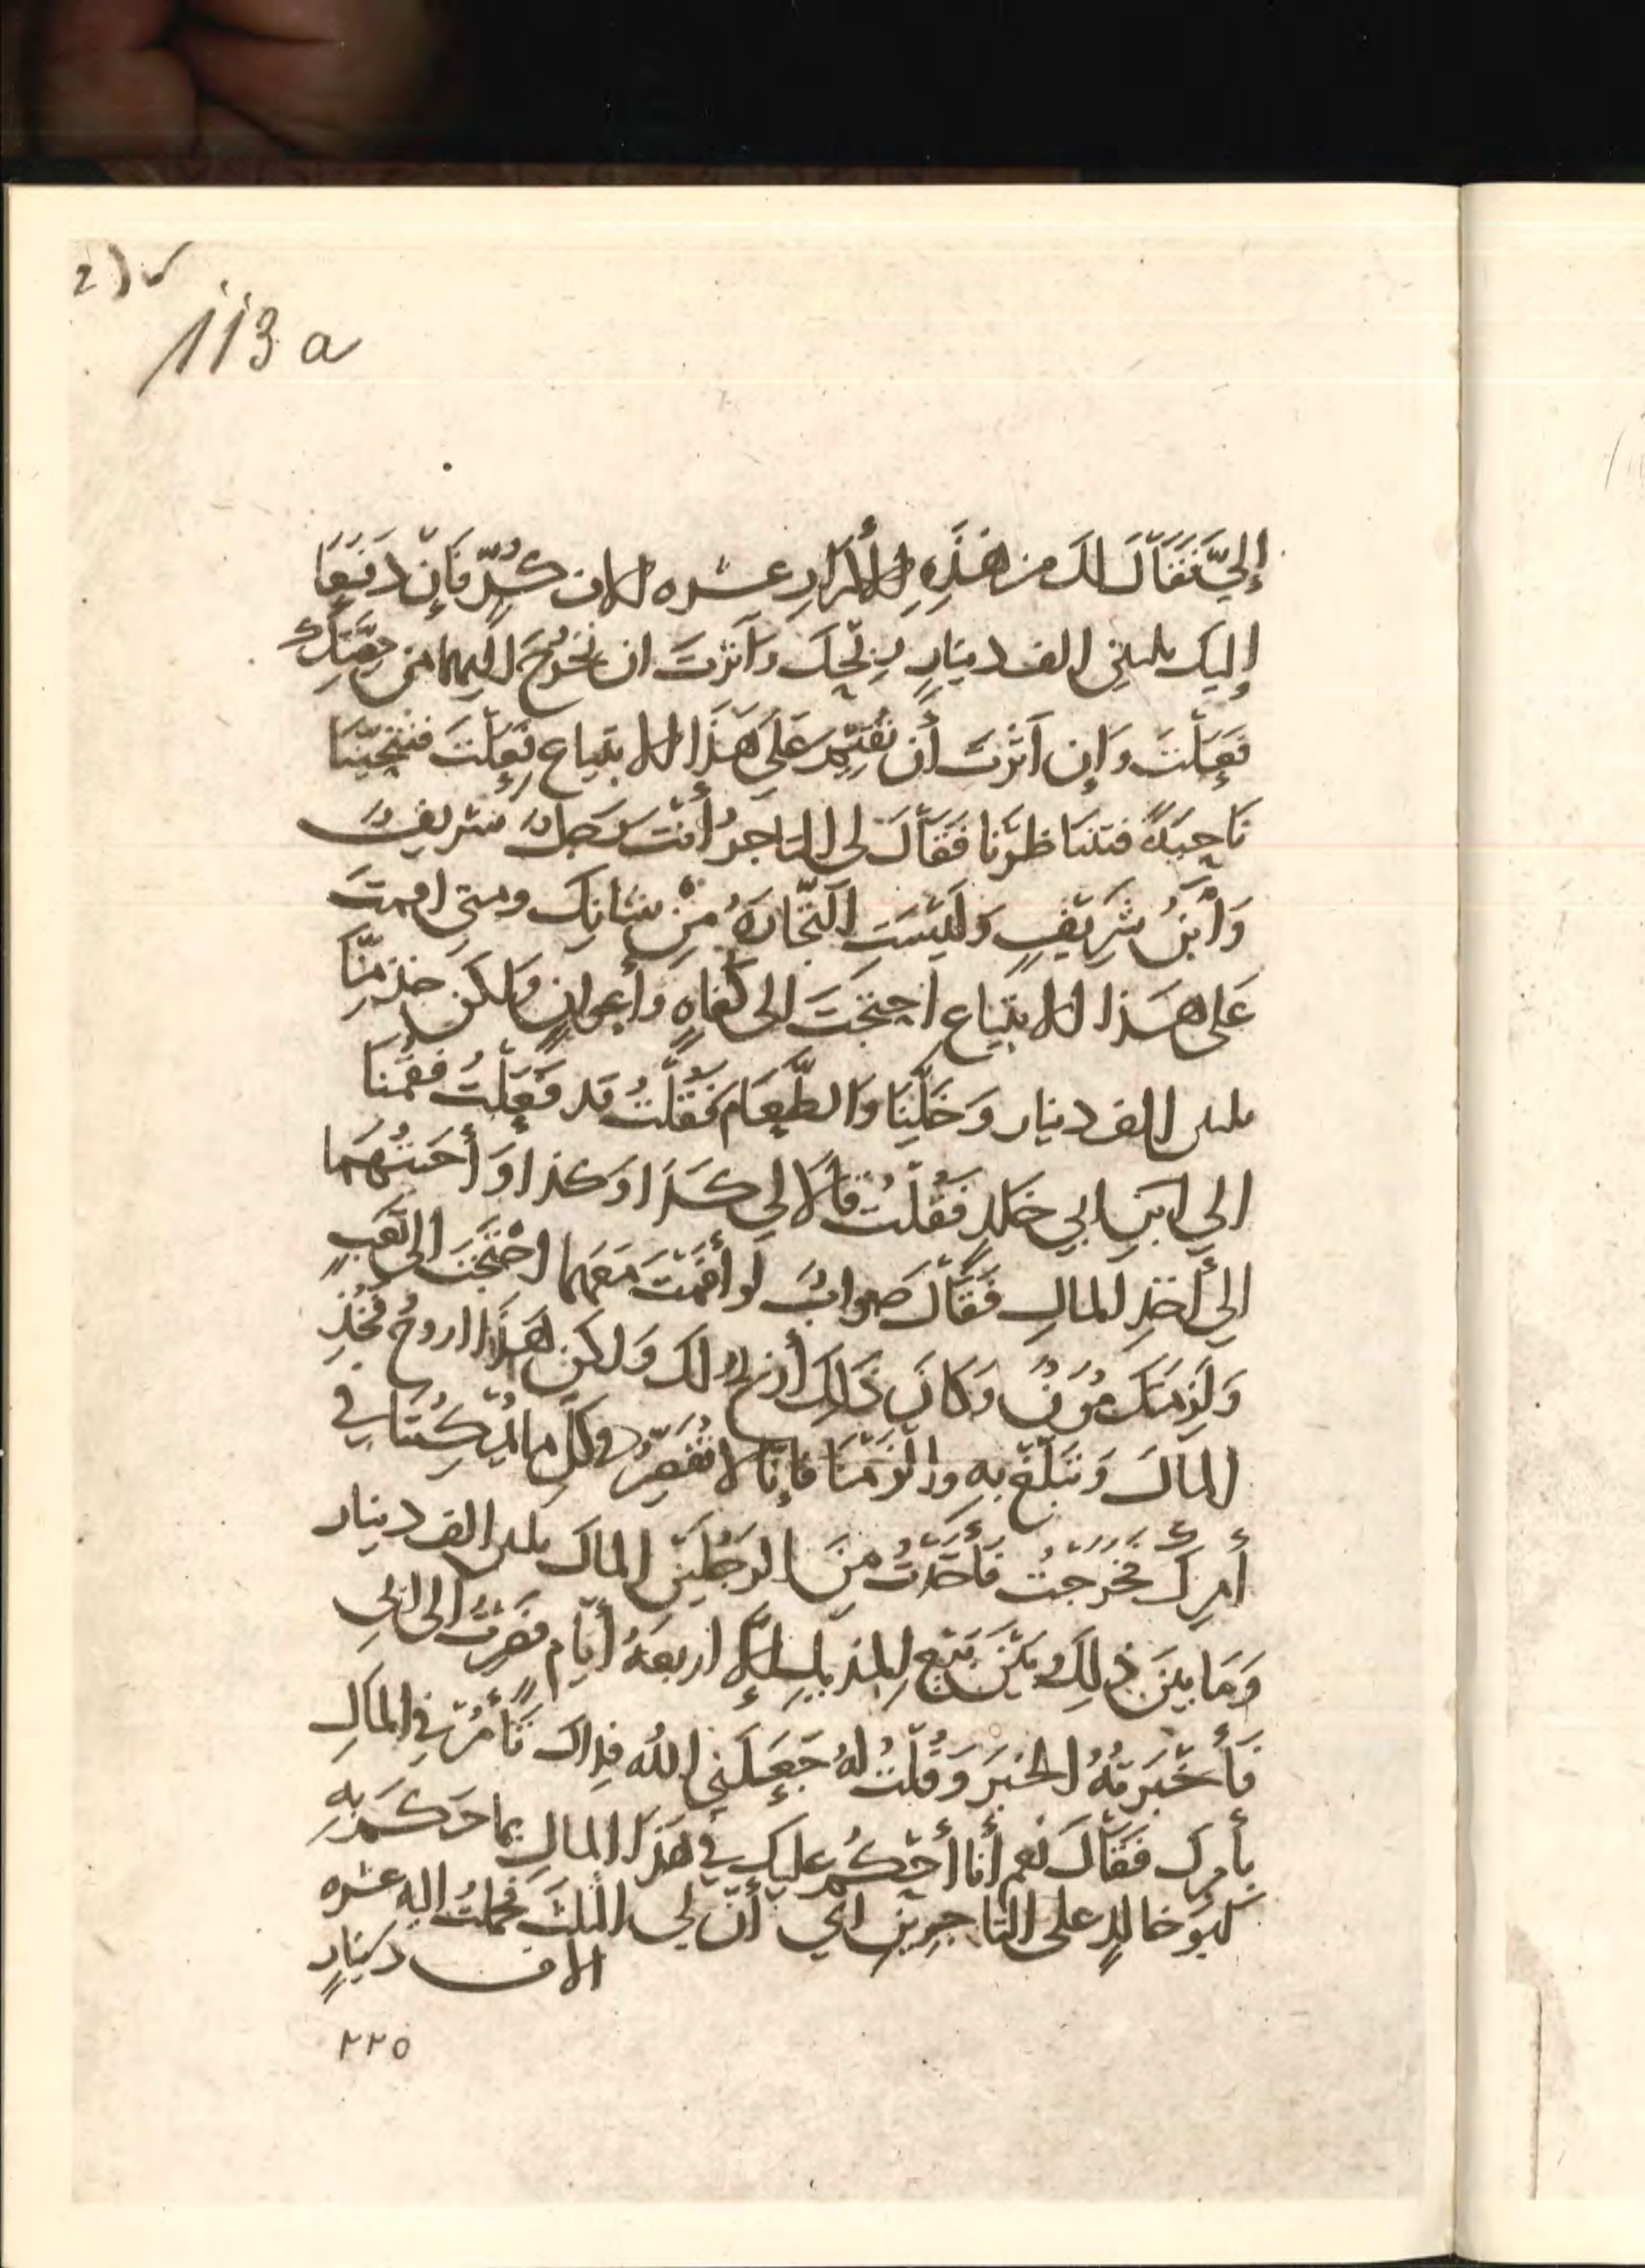 113 a
إِلَيَّ فَقَالَ لَكَ مِن هَذِهِ الأَكْرَارِ عشره الاف كُرٍّ فَإِن دَفَعَا
إِلَيك ثلثين الف دينَارٍ رِبْحَكَ وَآثَرْتَ ان تَخْرُجَ اليهما من حِصَّتِكَ
فَعَلْتَ وَإِن آثَرْتَ أَن تُقِيمَ عَلَى هَذَا الابتِيَاعِ فَعَلْتَ فتنحّينَا
نَاحِيَةً فتنَاظَرْنَا فَقَالَ لى التاجرُ أَنْتَ رَجلٌ شريفٌ
وَابْنُ شَرِيفٍ وَلَيْسَتِ التِّجَارَةُ مِنْ شانِكَ ومتى اقمتَ
عَلى هَذا الابتِيَاعِ احتَجْتَ الى كُفاهٍ وَأَعوانٍ وَلكن خذ مِنَّا
ثلثين الف دينار وَخَلِّنَا وَالطَّعَام فَقُلْتُ قد فَعَلْتُ فقُمْنَا
الي ابنِ ابي خلدٍ فَقُلْتُ قَالَا لي كَذَا وَكذا وَأَجَبْتُهُمَا
الى أَخذِ المالِ فَقَالَ صَوابٌ لو أَقَمْتَ مَعَهما احْتَجْتَ الى تَعَبٍ
وَلَزِمَتْكَ مُؤَنٌ وَكَانَ ذَلِكَ أَربحُ لَكَ وَلكِن هَذا اروحُ فَخُذِ
المالَ وَتَبَلَّغْ بِهِ وَالزَمْنَا فإِنَّا لا نُقَصِّرُ في كلِّ ما يُمْكِنُنَا في
أَمرِكَ فَخَرَجْتُ فَأَخَذْتُ مِنَ الرَجُلَيْنِ المالَ ثلثين الف دينار
وَمَا بينَ ذلِكَ وَبَيْنَ بَيْعِ المنديلِ إِلَّا اربعةُ أيّام فَصِرْتُ الى ابي
فَأَخْبَرتُهُ الخبَرَ وَقُلْتُ لهُ جَعَلَنِي اللهُ فِداك تَأْمُرُ في المَالِ
بأَمرِكَ فَقَالَ نَعم أَنا أَحْكُمُ عليك في هَذَا المالِ بما حَكَمَ بِهِ
ابو خالدٍ على التاجِرَيْنِ اي أَنَّ لي الثلثَ فحملتُ اليه عشره
الاف دينارٍ
٢٢٥